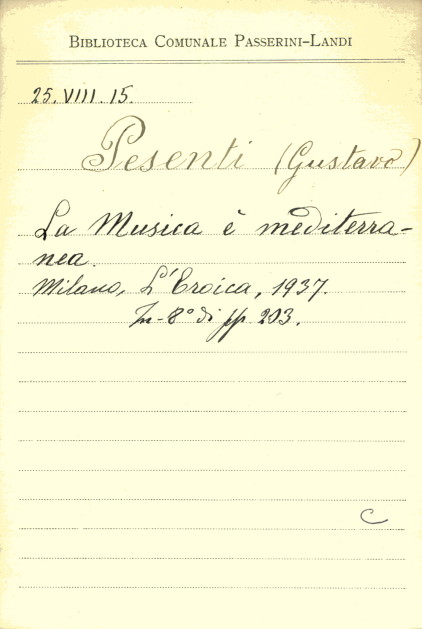 BIBLIOTECA COMUNALE PASSERINI-LANDI
25.VIII.15.
Pesenti (Gustavo)
La Musica è mediterra-
nea.
Milano, L'Eroica, 1937.
In-8° di pp 203.
C